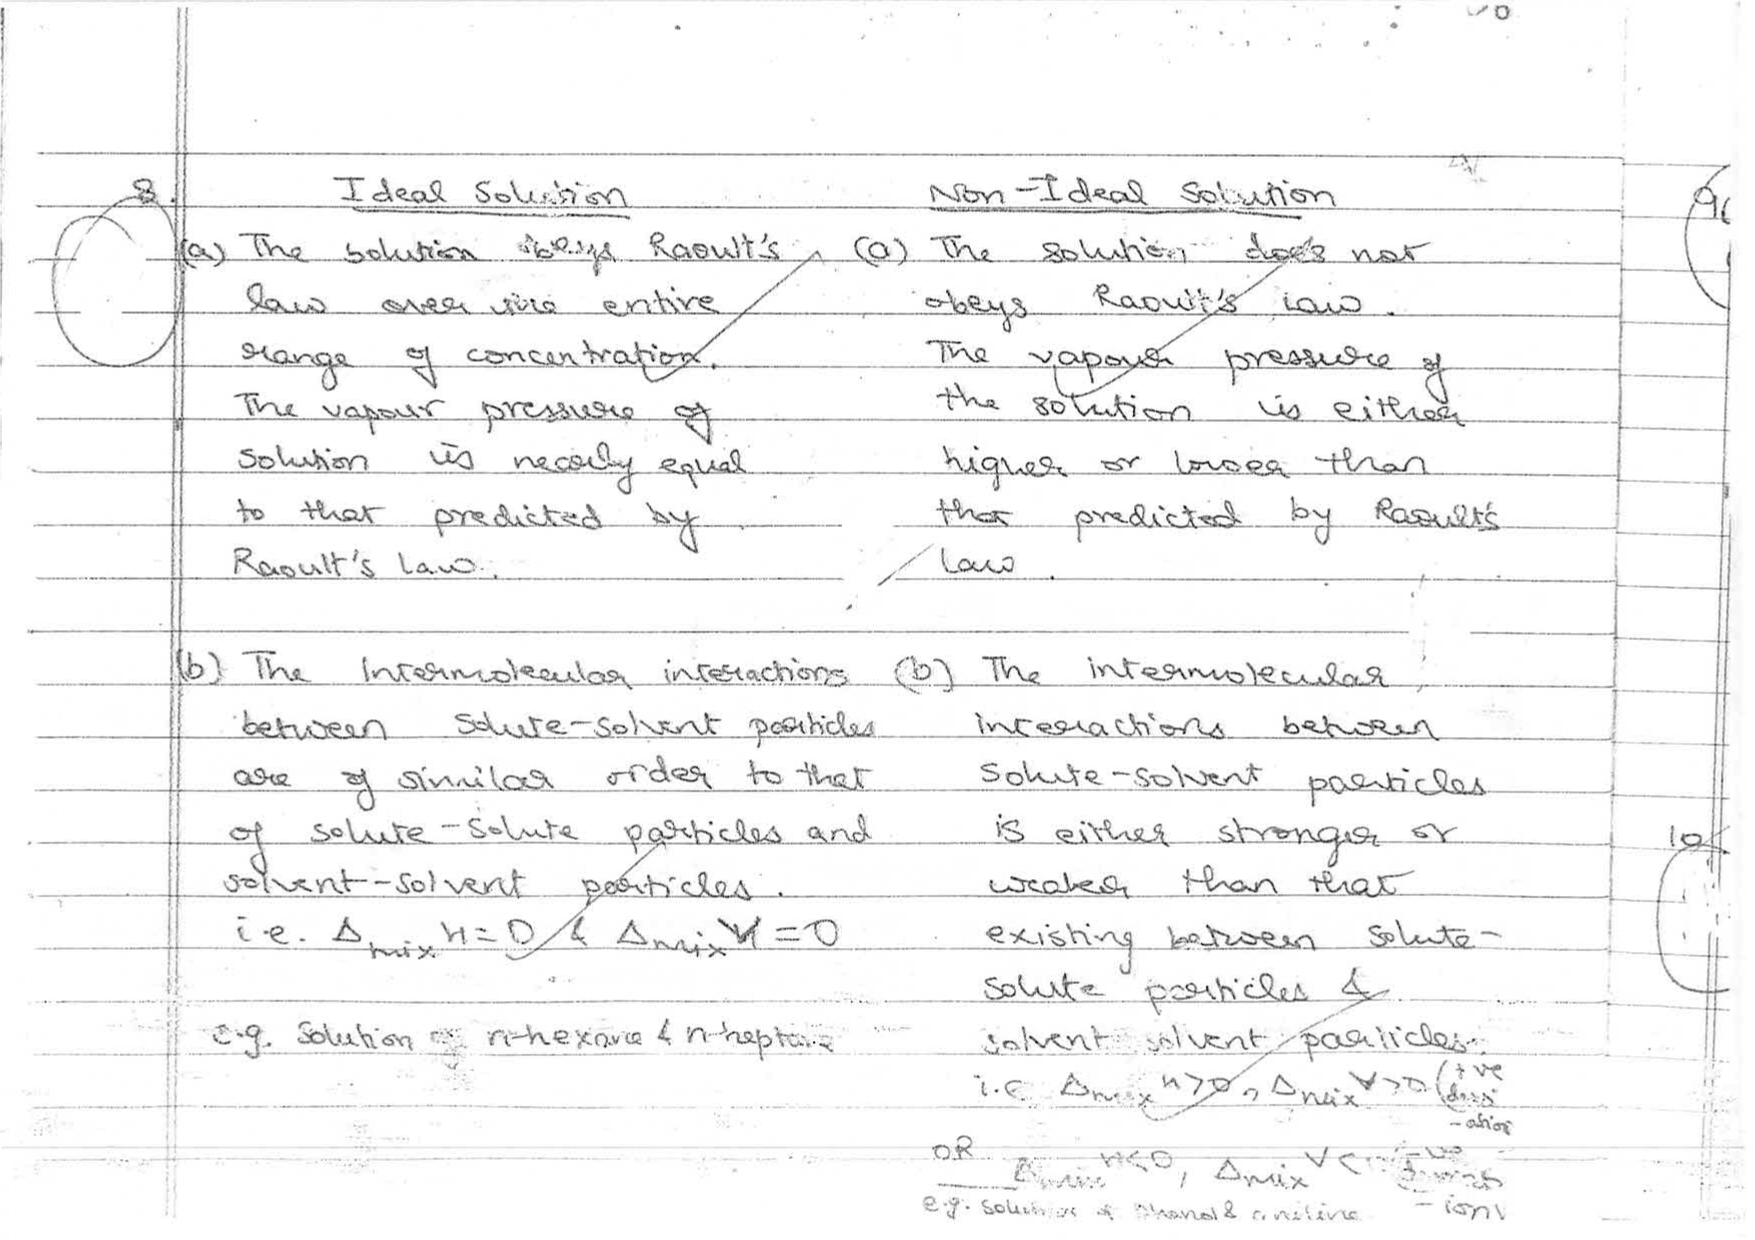 8. Ideal Solution
(a) The solution obeys Raoult's
law over the entire
range of concentration.
The vapour pressure of
solution is nearly equal
to that predicted by
Raoult's law.
(b) The Intermolecular interactions
between solute-solvent particles
are of similar order to that
of solute-solute particles and
solvent-solvent particles.
i.e. Δmix H = 0 & Δmix V = 0
e.g. Solution of n-hexane & n-heptane
Non-Ideal Solution
(a) The solution does not
obeys Raoult's law.
The vapour pressure of
the solution is either
higher or lower than
that predicted by Raoult's
law.
(b) The intermolecular
interactions between
solute-solvent particles
is either stronger or
weaker than that
existing between solute-
solute particles &
solvent solvent particles.
i.e Δmix H>0, Δmix V>0 (+ve
devi
-ation
OR Δmix H<0, Δmix V<
e.g. Solution of & aniline
-ion)
9
10